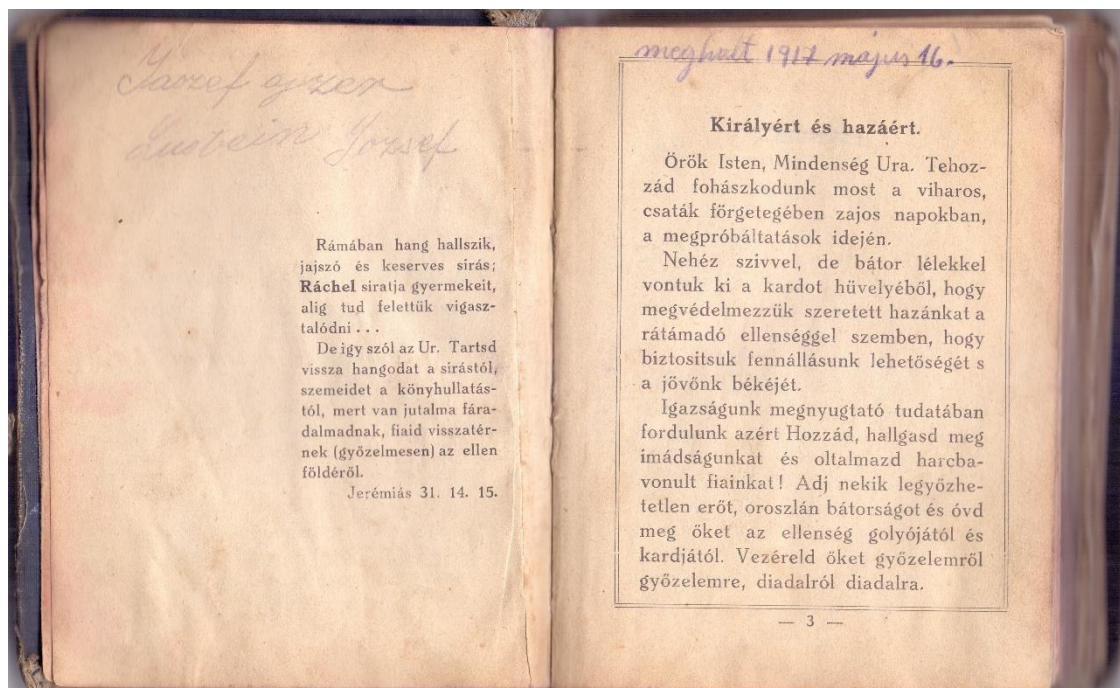 József
József
Rámában hang hallszik,
jajszó és keserves sirás;
Ráchel siratja gyermekeit,
alig tud felettük vigasz-
talódni . . .
De igy szól az Ur. Tartsd
vissza hangodat a sirástól,
szemeidet a könyhullatás-
tól, mert van jutalma fára-
dalmadnak, fiaid visszatér-
nek (győzelmesen) az ellen
földéről.
Jerémiás 31. 14. 15.
meghalt 1917 május 16.
Királyért és hazáért.
Örök Isten, Mindenség Ura. Tehoz-
zád fohászkodunk most a viharos,
csaták förgetegében zajos napokban,
a megpróbáltatások idején.
Nehéz szivvel, de bátor lélekkel
vontuk ki a kardot hüvelyéből, hogy
megvédelmezzük szeretett hazánkat a
rátámadó ellenséggel szemben, hogy
biztositsuk fennállásunk lehetőségét s
a jövőnk békéjét.
Igazságunk megnyugtató tudatában
fordulunk azért Hozzád, hallgasd meg
imádságunkat és oltalmazd harcba-
vonult fiainkat! Adj nekik legyőzhe-
tetlen erőt, oroszlán bátorságot és óvd
meg őket az ellenség golyójától és
kardjától. Vezéreld őket győzelemről
győzelemre, diadalról diadalra.
— 3 —